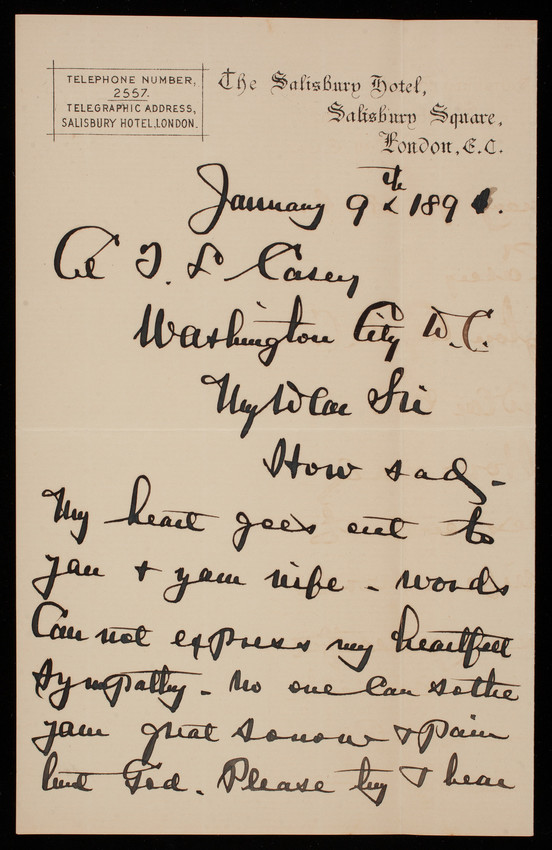 TELEPHONE NUMBER,
2557.
TELEGRAPHIC ADDRESS,
SALISBURY HOTEL, LONDON.
The Salisbury Hotel,
Salisbury Square,
London, E.C.
January 9th 189
T. L Casey
Washington City D.C.
My Dear Sir
How sad -
My heart goes out to
you + your wife - words
Can not express my heartfelt
Sympathy - No one Can sothe
your great sorrow + pain
but God. Please try + bear